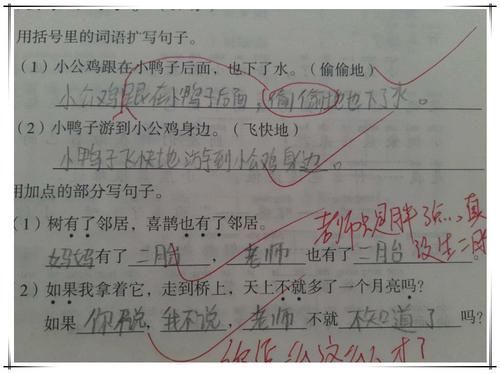 用括号里的词语扩写句子。
（1）小公鸡跟在小鸭子后面，也下了水。（偷偷地）
小公鸡跟在小鸭子后面，偷偷地也下了水。
（2）小鸭子游到小公鸡身边。（飞快地）
小鸭子飞快地游到小公鸡身边。
用加点的部分写句子。
（1）树有了邻居，喜鹊也有了邻居。
老师只是胖了点…真
没生二胎
妈妈有了二胎，老师也有了二胎。
2）如果我拿着它，走到桥上，天上不就多了一个月亮吗？
如果你不说，我不说，老师不就不知道了吗？
你怎么这么